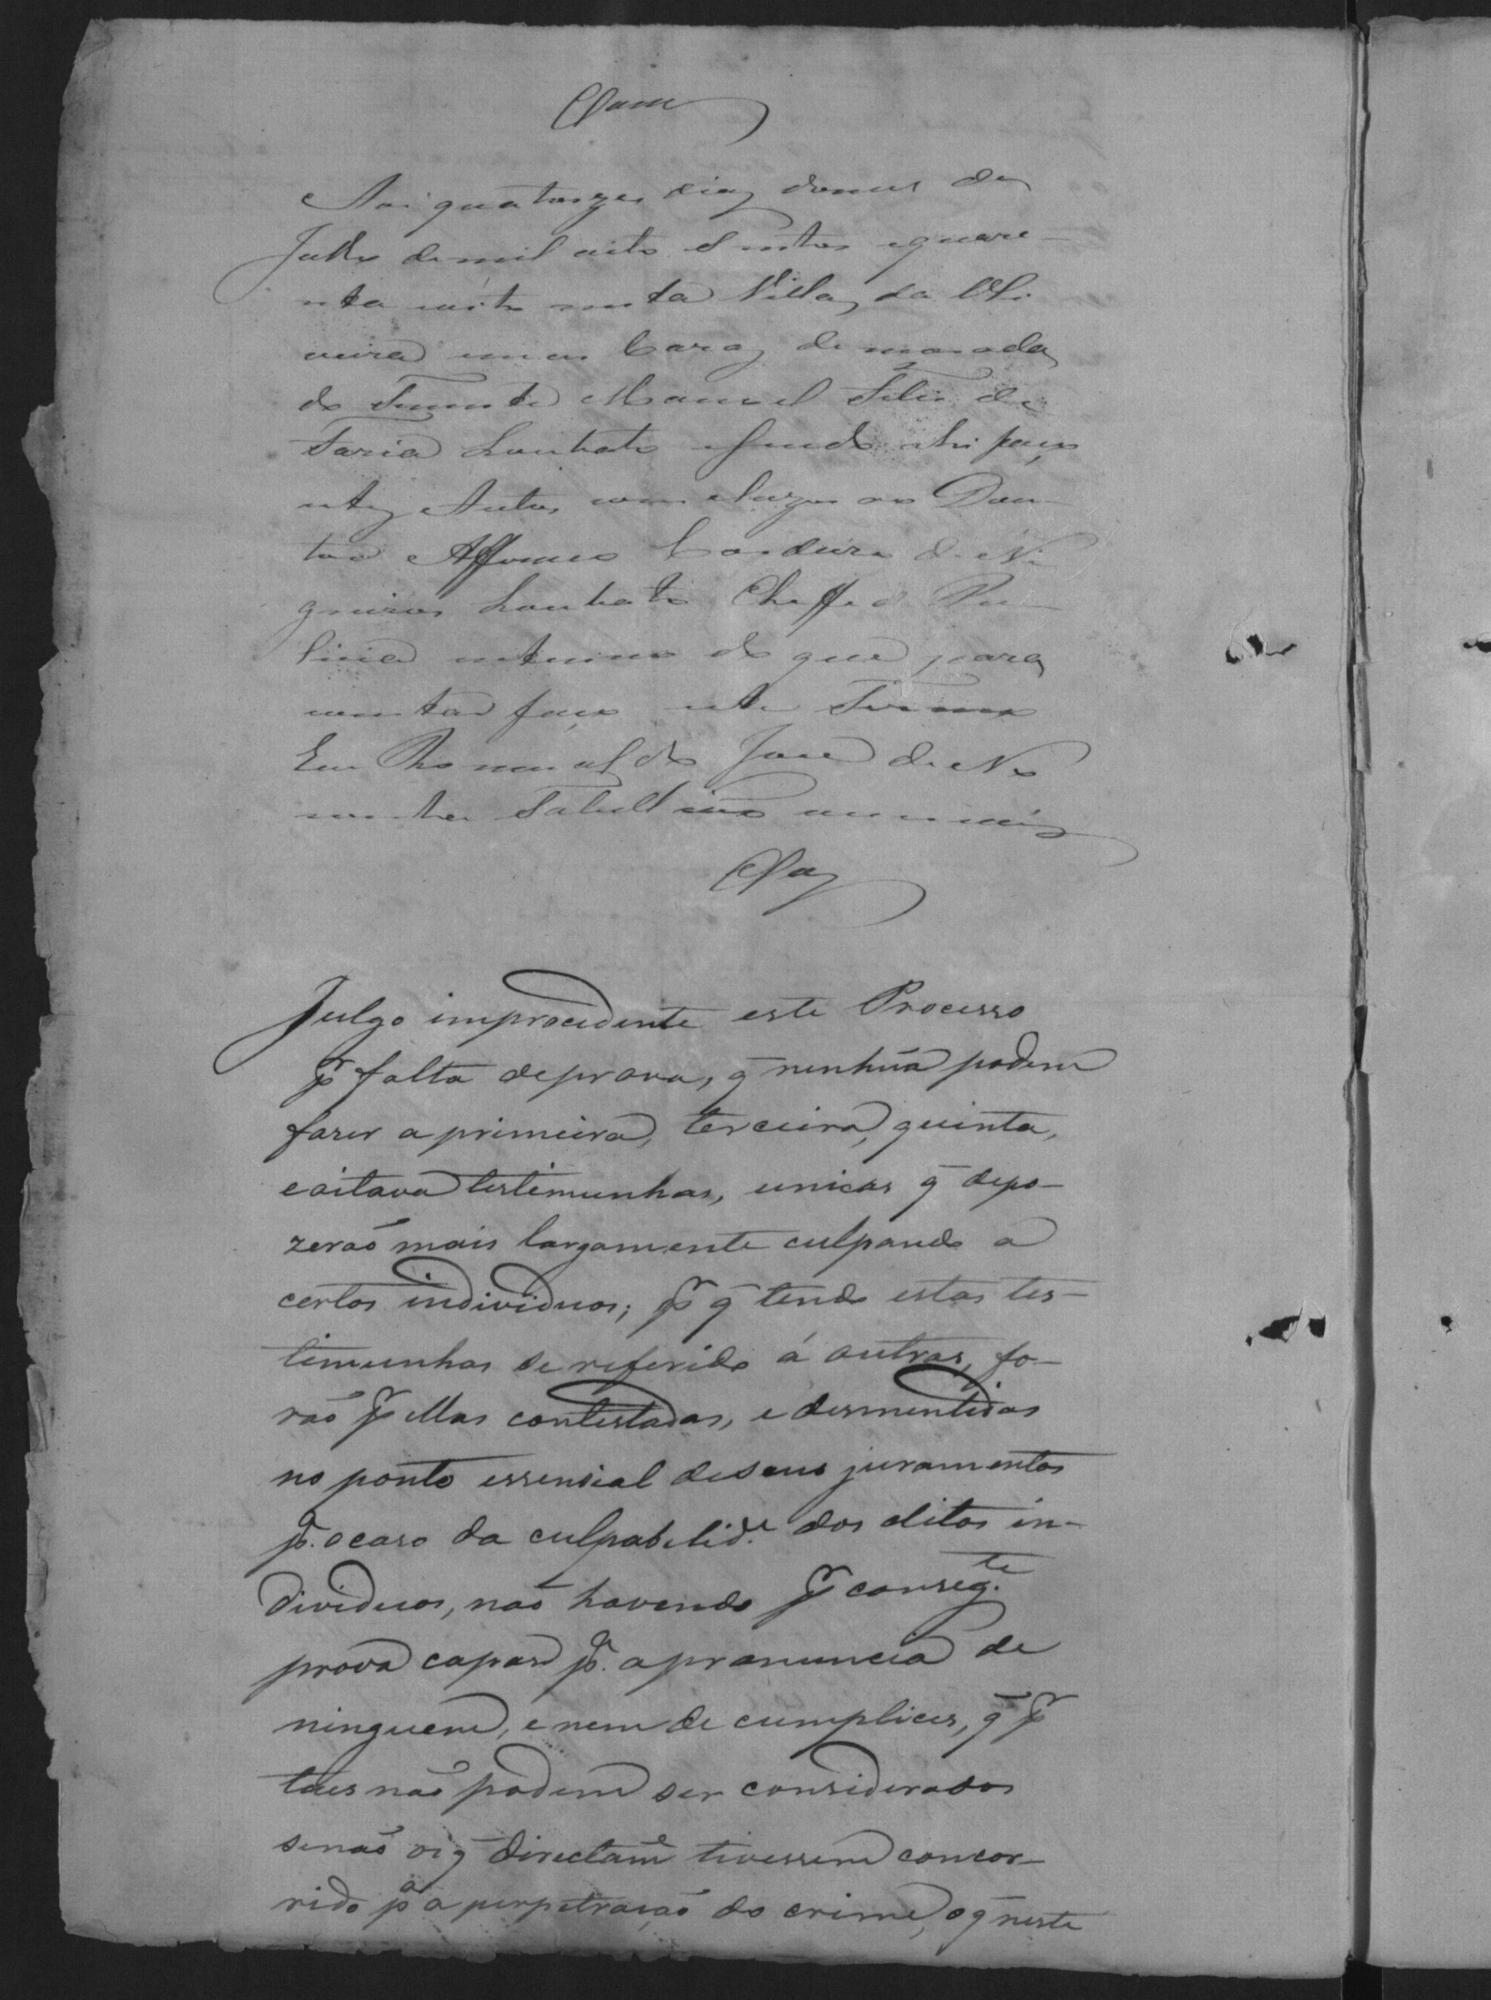 Aos quatorze dias do mes de
Julho de mil oito Sentos e quare-
nta e oito nesta Villa da Oli
veira em a Caza de morada
do Tenente Manoel Felis de
Faria Lambate e sendo ahi faço
estes Autos concluzos ao Dou-
tor Affonso Cordeiro de Ne
greiros Lambate Cheffe de Pu-
licia interino do que para
constar faço este Termo
Eu Romualdo José de
Tabelliao
Clas
Julgo improcedente este Processo
pr falta de prova, q̄ nenhũa podem
fazer a primeira, terceira, quinta,
e oitava testimunhas, unicas q̄ depo-
zerão mais largamente culpando a
certos individuos; pr q̄ tendo estas tes-
timunhas se referido á outras, fo-
rão pr ellas contestadas, e desmentidas
no ponto essencial de seus juramentos
pa. o caso da culpabelide. dos ditos in-
dividuos, não havendo pr conseg.te
prova capas pa. a pronuncia de
ninguem, e nem de cumplices, q̄ pr
taes não podem ser considerados
senão os q̄ directamē tivessem concor-
rido pa a perpetração do crime, o q̄ neste